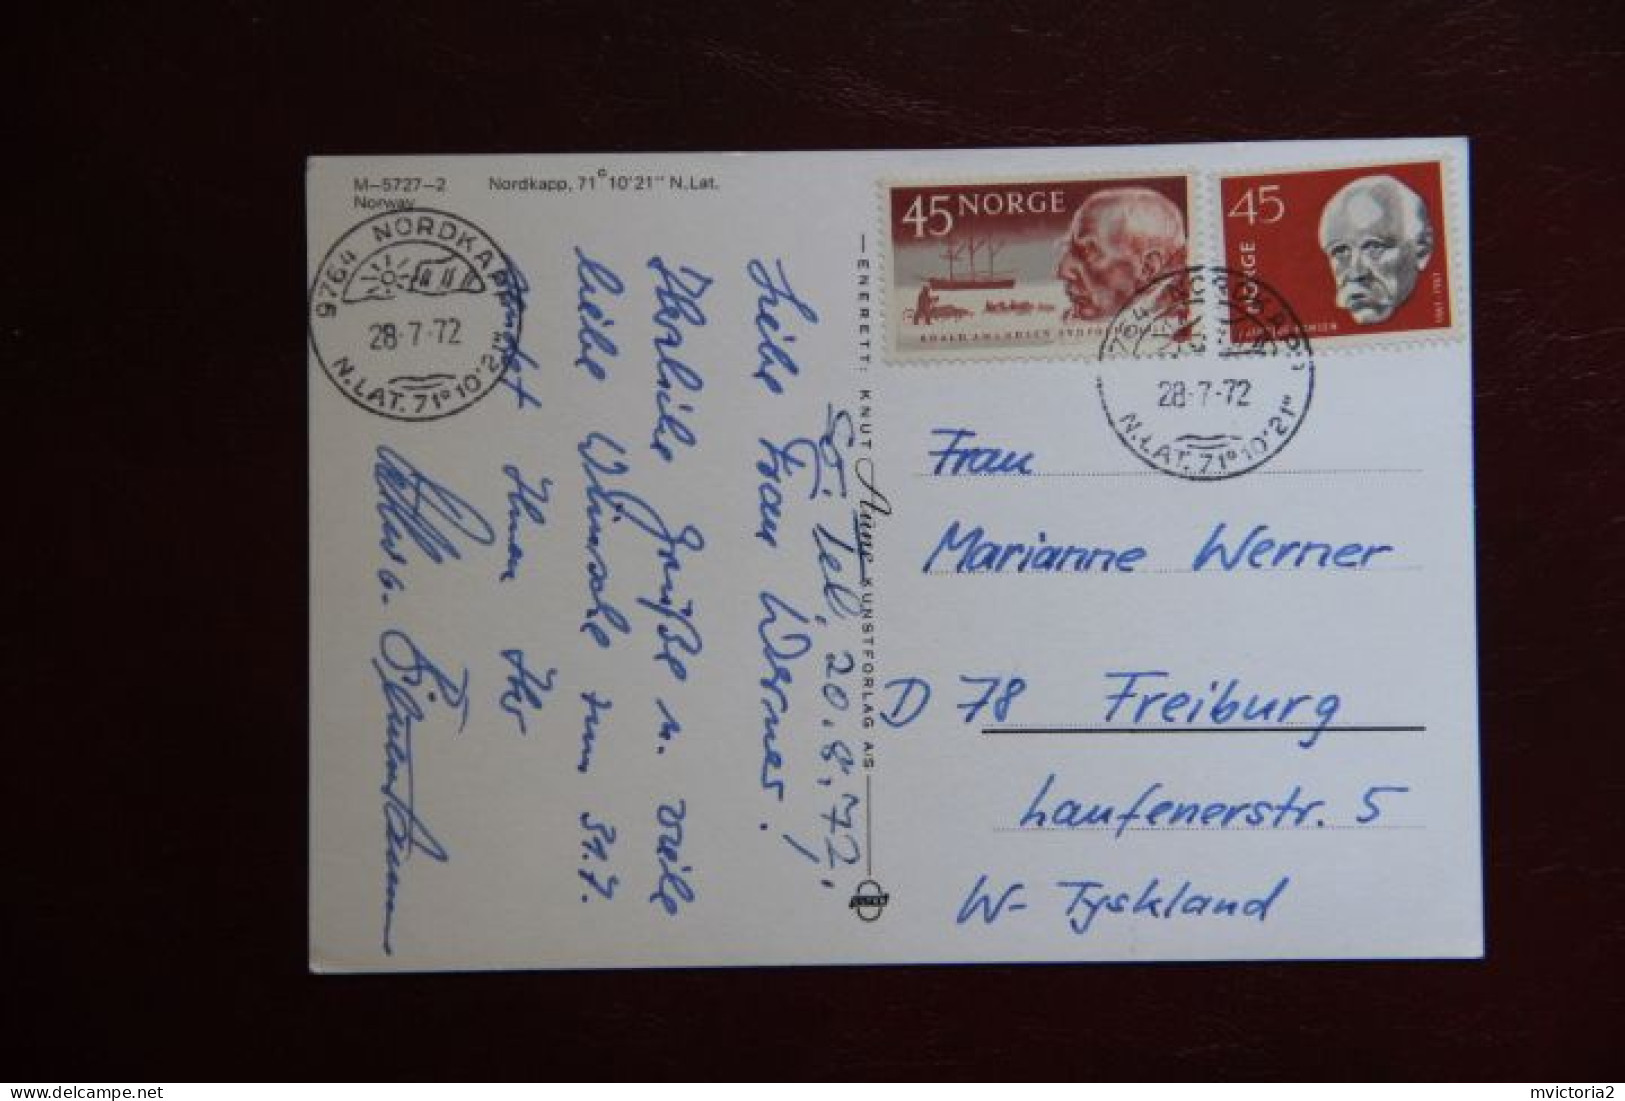 M-5727-2 Nordkapp, 71°10'21" N.Lat.
Norway
9764 NORDKAPP
28-7-72
N.LAT. 71°10'21"
Liebe Frau Werner!
Herzliche Grüße u. viele
liebe Wünsche zum 31.7.
sendet Ihnen Ihr
20.8.72.
ENERETT: KNUT Aune KUNSTFORLAG A/S
45 NORGE
ROALD AMUNDSEN SYDPOLEN
45
NORGE
1861-1961
28-7-72
N.LAT. 71°10'21"
Frau
Marianne Werner
D 78 Freiburg
Laufenerstr. 5
W-Tyskland
mvictoria2